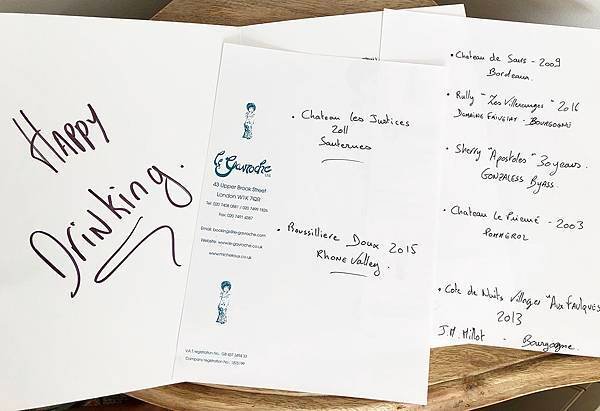 HAPPY
DRINKING.
Le Gavroche
LTD.
43 Upper Brook Street
London W1K 7QR
Tel: 020 7408 0881 / 020 7499 1826
Fax: 020 7491 4387
Email: bookings@le-gavroche.com
Website: www.le-gavroche.co.uk
www.michelroux.co.uk
V.A.T. registration No.:
Company registration No.:
• Chateau Les Justices
2011
Sauternes
• Roussilliere Doux 2015
Rhone Valley.
• Chateau de Sours - 2009
Bordeaux.
• Rully "Les Villeranges" 2016
Domaine Faiveley - Bourgogne
• Sherry "Apostoles" 30 years.
Gonzaless Byass.
• Chateau Le - 2003
Pomerol
• Cote de Nuits Villages "Aux Faulques
2013
J.M. Millot - Bourgogne.